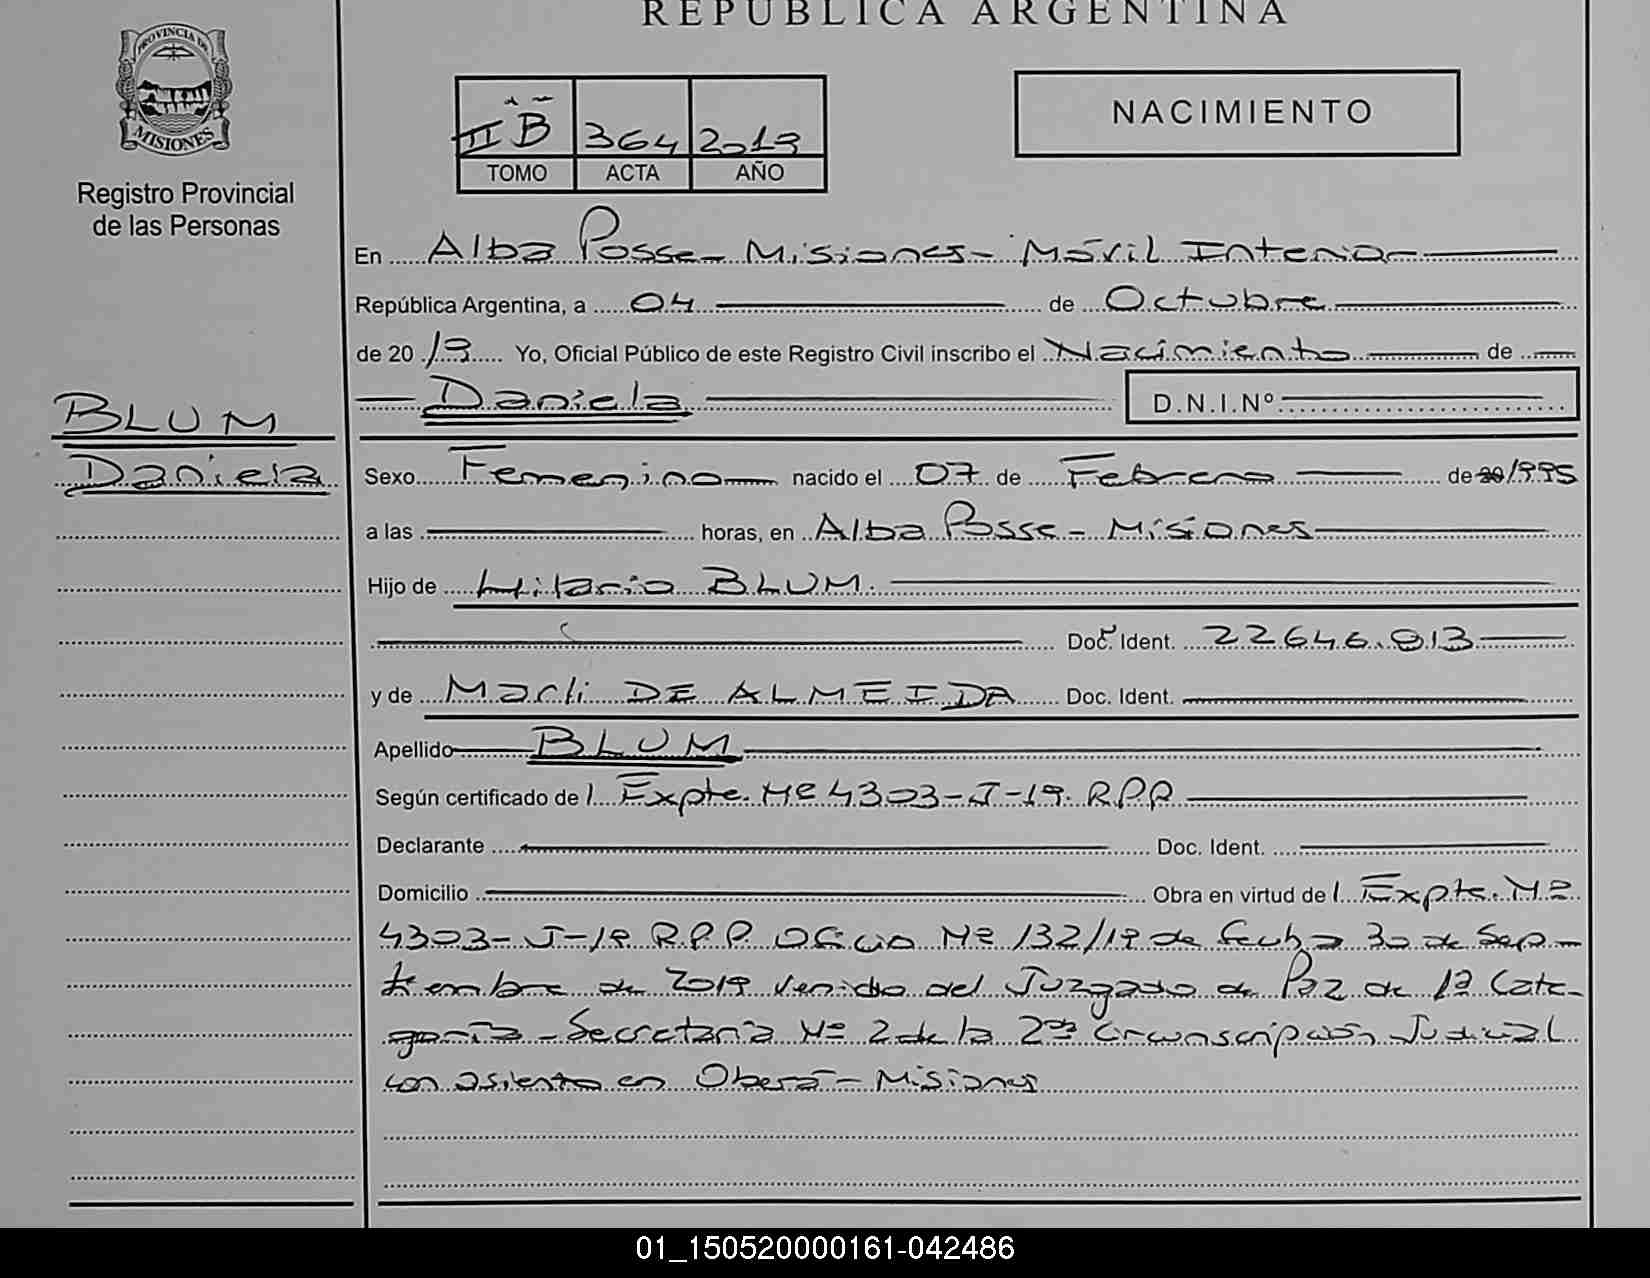 REPÚBLICA ARGENTINA
PROVINCIA DE
MISIONES
Registro Provincial
de las Personas
II B 364 2019
TOMO ACTA AÑO
NACIMIENTO
En Alba Posse - Misiones - Móvil Interior
República Argentina, a 04 de Octubre
de 20 19 Yo, Oficial Público de este Registro Civil inscribo el Nacimiento de
Daniela D.N.I.Nº
BLUM
Daniela
Sexo Femenino nacido el 07 de Febrero de 20 1995
a las horas, en Alba Posse - Misiones
Hijo de Hilario BLUM.
Doc. Ident. 22646.813
y de Marli DE ALMEIDA Doc. Ident.
Apellido BLUM
Según certificado de l Expte. Nº 4303-J-19. R.P.P
Declarante Doc. Ident.
Domicilio Obra en virtud de l Expte. Nº
4303-J-19 R.P.P. Oficio Nº 132/19 de fecha 30 de Sep-
tiembre de 2019 venido del Juzgado de Paz de 1ª Cate-
goría - Secretaria Nº 2 de la 2da Circunscripción Judicial
con asiento en Oberá - Misiones
01_150520000161-042486